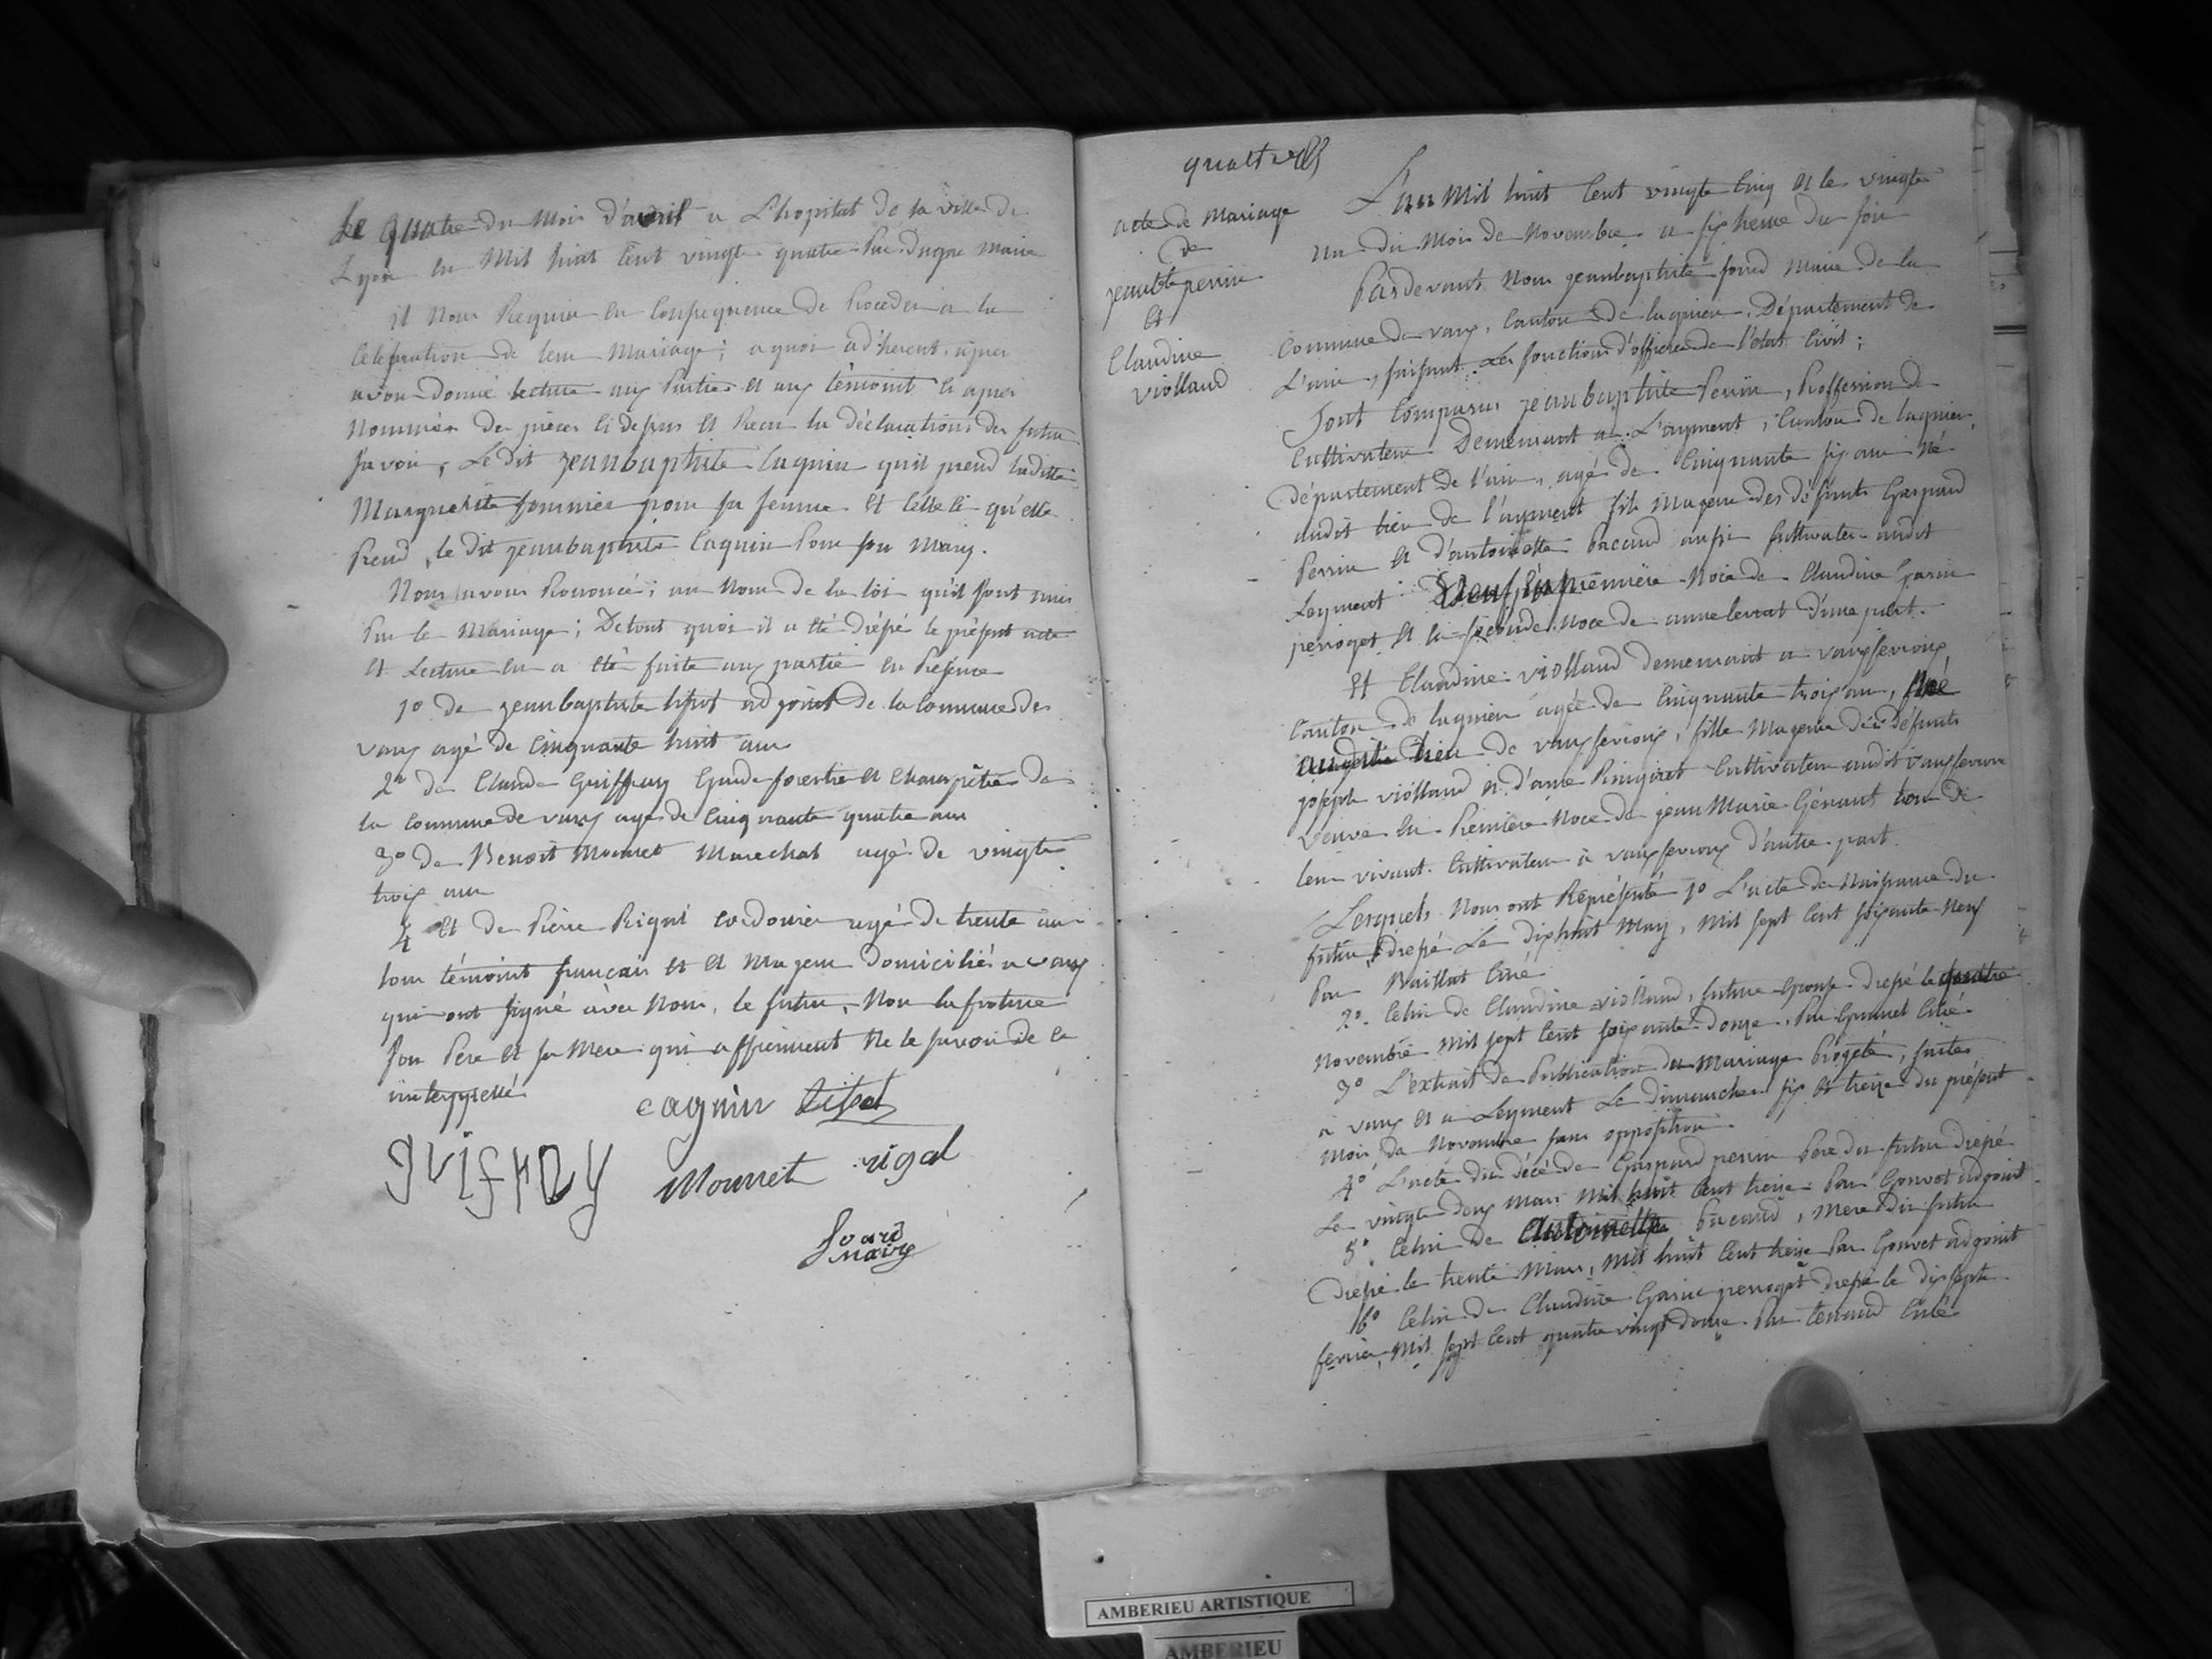 Le quatre du Mois d'avril a L'hopital de la ville de
Lyon en Mil huit Cent vingt quatre Par Dugne Maire
il Nous Requier en Consequence de Proceder a la
Celebration de leur Mariage; a quoi adherent. apres
avoir Donné lecture aux Parties et aux témoint Ci apres
Nommées des pièces Ci Dessus et Recu la déclarations des futur
Savoir, Le dit jeanbaptiste Cagnin quil prend laditte
Marguerite Sommier pour sa femme. et Celle Ci qu'elle
Prend, le dit jeanbaptiste Cagnin Pour son Mary.
Nous avons Prononcé; au Nom de la loi quil sont unis
Par le Mariage; De tout quoi il a été drésé le présent acte
et Lecture en a été faite aux partie en Présence
1º de jeanbaptiste adjoint de la Commune de
vaux agé de Cinquante huit ans
2º de Claude Guiffray Garde forestier et Champêtre De
la Commune de vaux agé de Cinquante quatre ans
3º de Benoit Mounet Marechal agé de vingt
trois ans
4 et de Pierre Rigal Cordonier agé de trente ans
tous témoint francais et et Majeur Domicilié a vaux
qui ont signé avec Nous, le futur, Non la future
Son Pere et sa Mere qui affirment Ne le savoir de ce
interppellé
cagnin
guifray Mounet rigal
Soard
maire
acte de Mariage
de
jeanbte perrin
et
Claudine
viollaud
L'an Mil huit Cent vingt Cinq et le vingt
un du Mois de Novembre a six heure du soir
Pardevant Nous jeanbaptiste Soard Maire de la
Commune de vaux, Canton de lagnieu, Département de
L'ain, faisant Les fonctions d'officier de l'état Civil;
Sont Comparus jeanbaptiste Perrin, Proffession de
Cultivateur Demeurant a L'ayment, Canton de lagnieu,
Département de l'ain, agé de Cinquante six ans Né
audit lieu de l'ayment fils Majeur des défunts Gaspard
Perrin et d'antoinette Bacand aussi Cultivateur audit
Leyment Veuf en première Noce de Claudine Garin
perroget et en seconde Noce de anne d'une part.
Et Claudine viollaud demeurant a vauxfevroux
Canton de lagnieu agée de Cinquante trois ans, Née
audit lieu de vauxfevroux, fille Majeure des défunts
joseph viollaud et d'anne Cultivateur audit vauxfevroux
veuve en Première Noce de jean Marie Génant de
leur vivant Cultivateur à vauxfevroux d'autre part.
Lesquels Nous ont Représenté 1º L'acte de Naissance du
futur drésé Le dixhuit May, Mil sept Cent soixante Neuf
Par Baillat Curé
2º Celui de Claudine viollaud, future Epouse drésé le quatre
Novembre Mil sept Cent soixante Douze, Par Curé
3º L'extrait de Publication du Mariage Projeté, faites
à vaux et a Leyment Le dimanches six et treize du présent
Mois de Novembre sans opposition
4º L'acte du décé de Gaspard perrin Pere du futur drésé
Le vingt deux Mars Mil huit Cent treize Par Gonvet adjoint
5º Celui de Antoinette Bacand, Mere du futur
Drésé le trente Mars, Mil huit Cent treize Par Gonvet adjoint
6º Celui de Claudine Garin perroget drésé le dixsept
fevrier Mil sept Cent quatre vingt douze Par Curé
AMBERIEU ARTISTIQUE
AMBERIEU